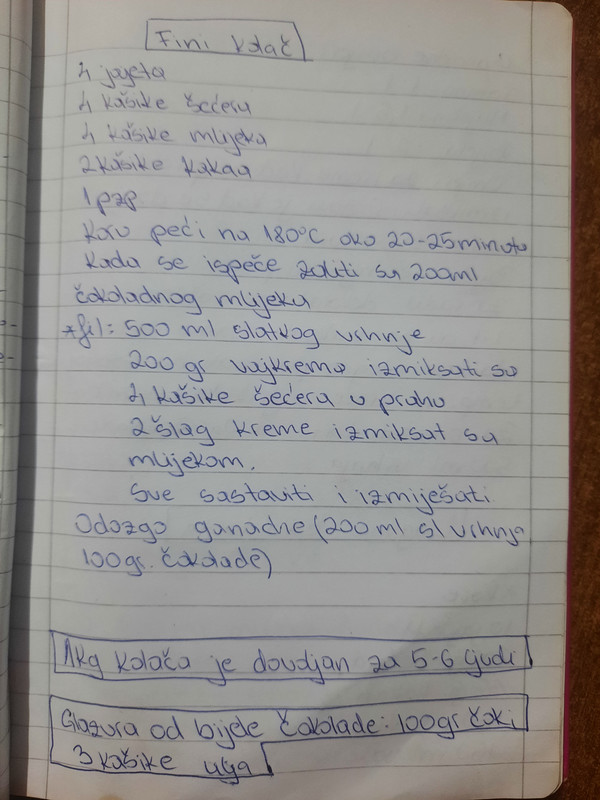 Fini kolač
4 jajeta
4 kašike šećera
4 kašike mlijeka
2 kašike kakaa
1 pzp
Koru peći na 180°C oko 20-25 minuta
Kada se ispeče zaliti sa 200ml
čokoladnog mlijeka
*fil: 500 ml slatkog vrhnje
200 gr vajkrema izmiksati sa
4 kašike šećera u prahu
2 šlag kreme izmiksat sa
mlijekom.
Sve sastaviti i izmiješati.
Odozgo ganache (200 ml sl vrhnja
100gr. čokolade)
1kg kolača je dovoljan za 5-6 ljudi
Glazura od bijele čokolade: 100gr čoki
3 kašike ulja